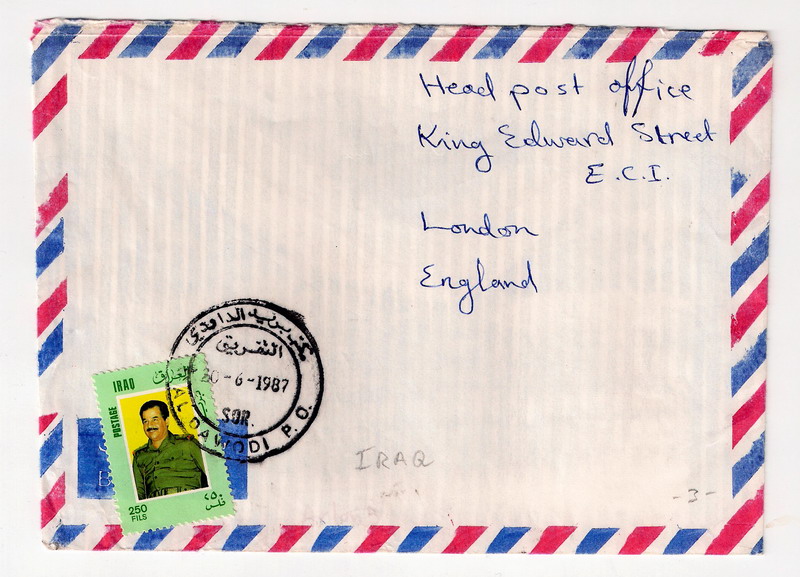 Head post office
King Edward Street
E.C.I.
London
England
مكتب بريد الداودي
التفريق
20-6-1987
SOR.
AL DAWODI P.O.
IRAQ
العراق
POSTAGE
250
FILS
٢٥٠
فلس
IRAQ
-3-